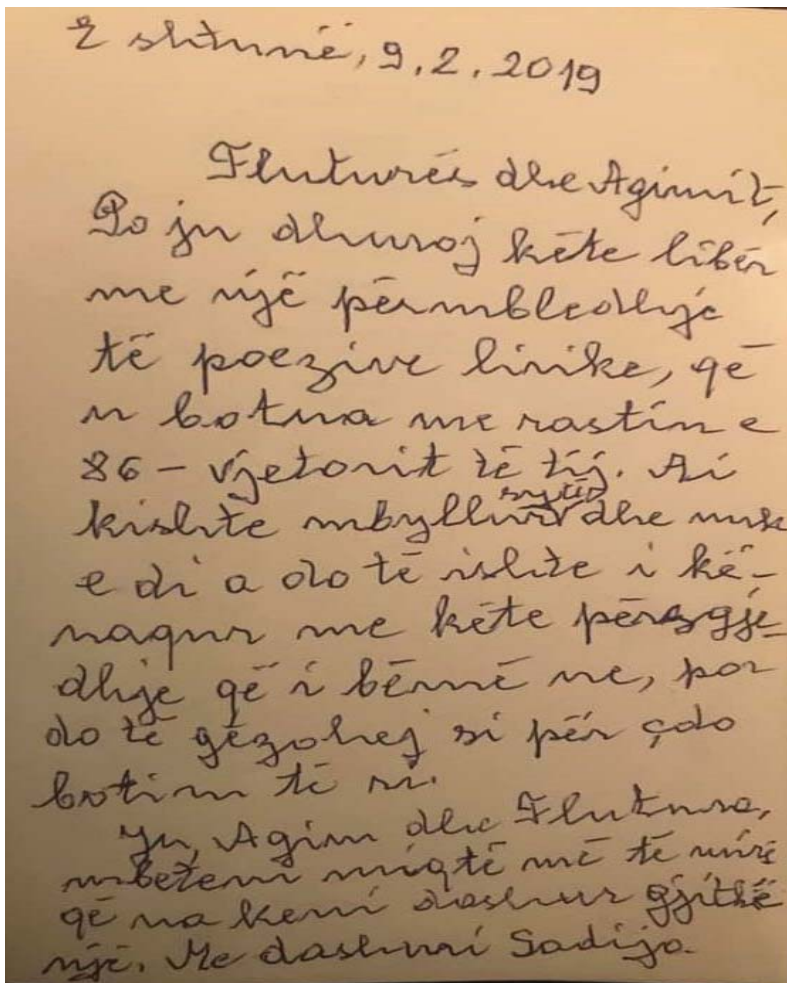 E shtunë, 9.2.2019
Fluturës dhe Agimit,
Po ju dhuroj këte libër
me një përmbledhje
të poezive lirike, që
u botua me rastin e
86-vjetorit të tij. Ai
kishte mbyllur sytë dhe nuk
e di a do të ishte i kë-
naqur me këte përzgje-
dhje që i bëmë ne, por
do të gëzohej si për çdo
botim të ri.
Ju, Agim dhe Flutura,
mbeteni miqtë më të mirë
që na keni dashur gjithë
një. Me dashuri Sadija.